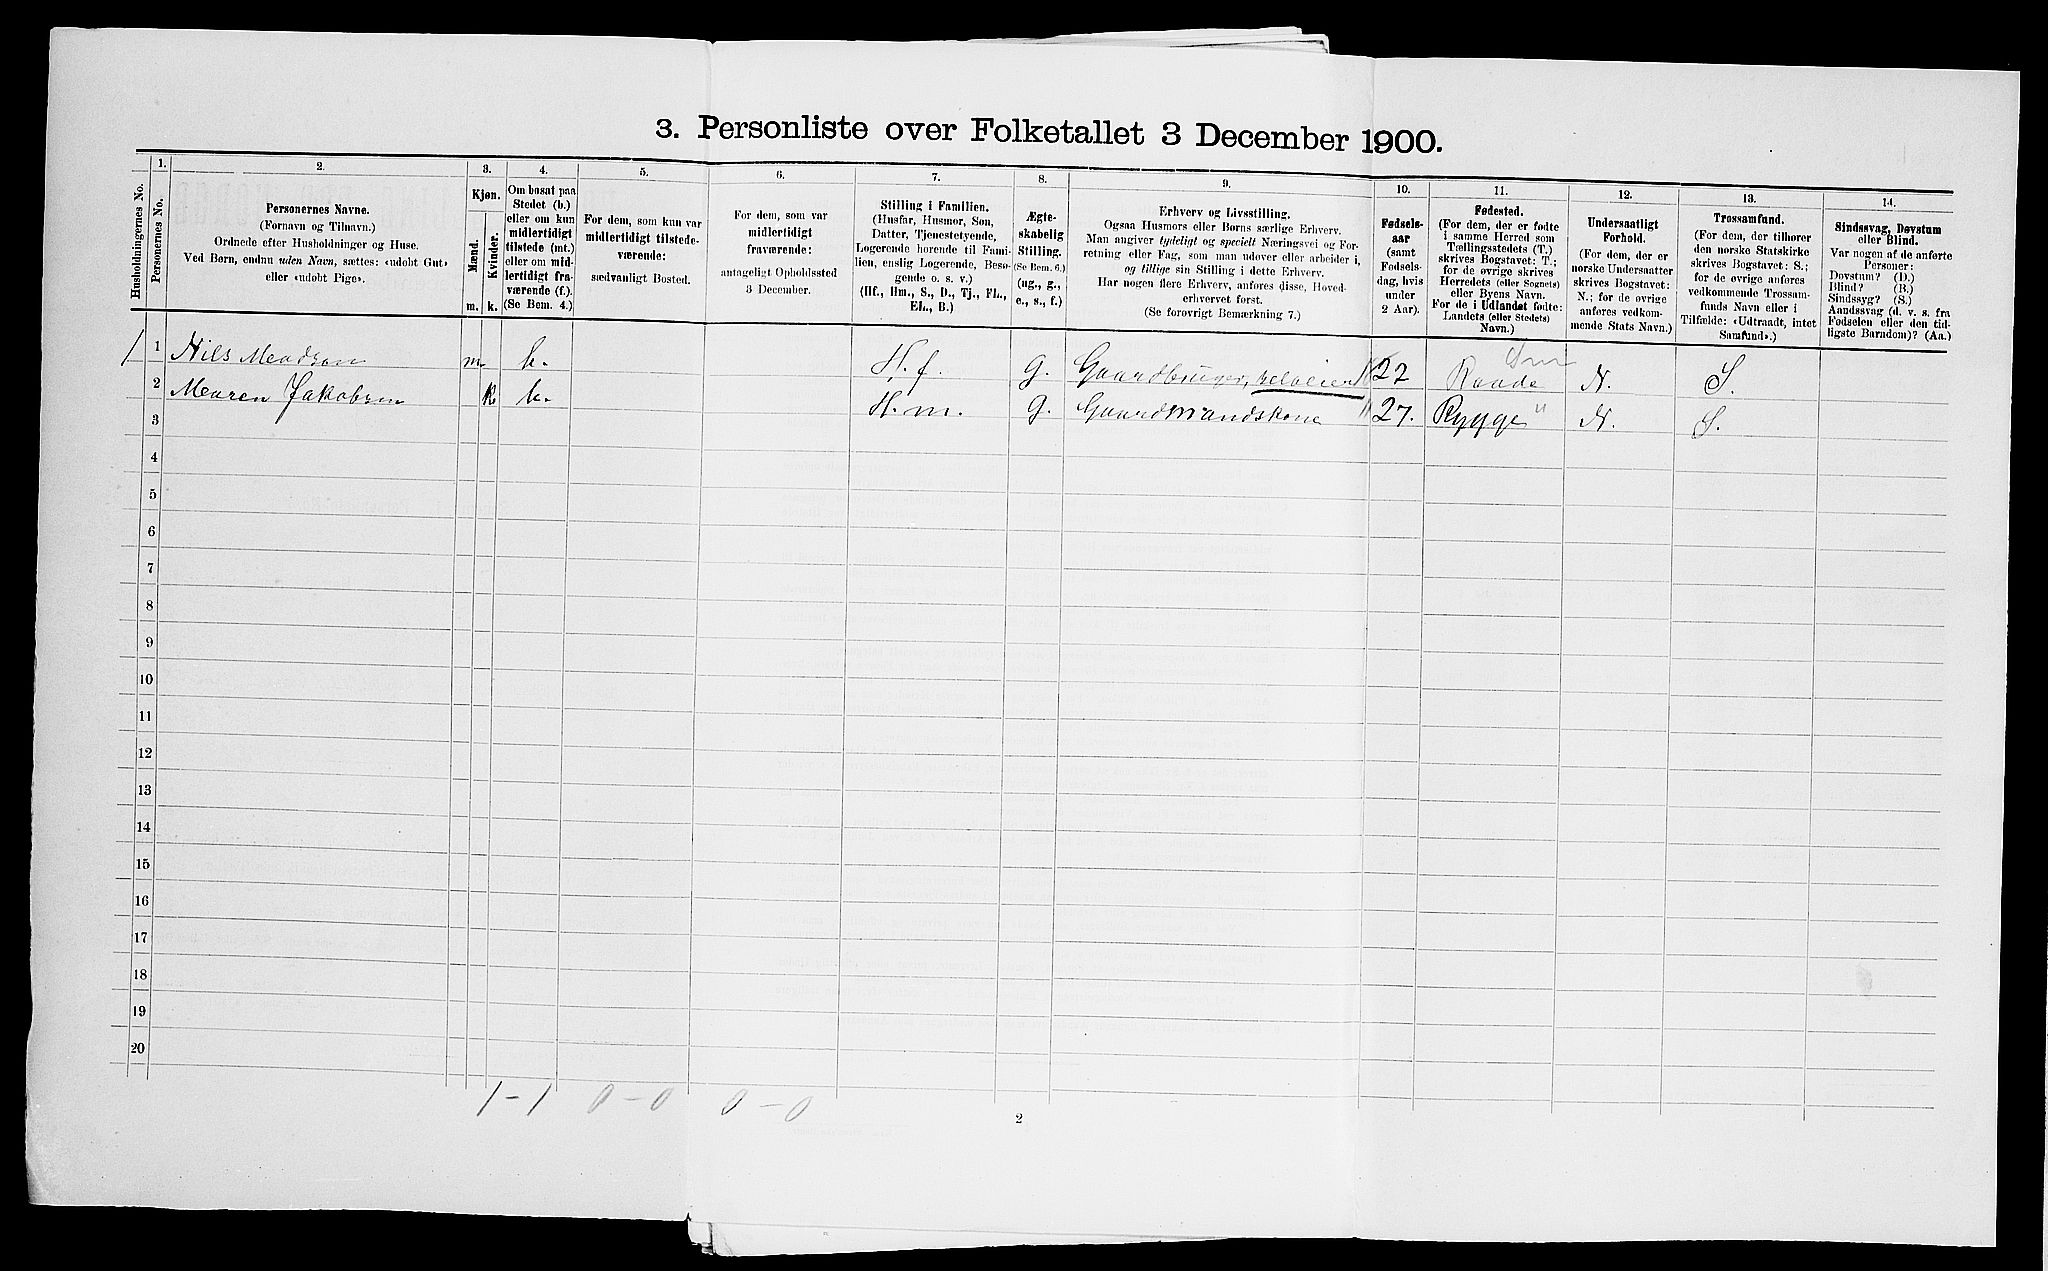 3. Personliste over Folketallet 3 December 1900.
Husholdningernes No.
1.
Personernes No.
2.
Personernes Navne.
(Fornavn og Tilnavn.)
Ordnede efter Husholdninger og Huse.
Ved Børn, endnu uden Navn, sættes: «udøbt Gut»
eller «udøbt Pige».
3.
Kjøn.
Mænd.
Kvinder.
m. k.
4.
Om bosat paa
Stedet (b.)
eller om kun
midlertidigt
tilstede (mt.)
eller om mid-
lertidigt fra-
værende (f.).
(Se Bem. 4.)
5.
For dem, som kun var
midlertidigt tilstede-
værende:
sædvanligt Bosted.
6.
For dem, som var
midlertidigt
fraværende:
antageligt Opholdssted
3 December.
7.
Stilling i Familien.
(Husfar, Husmor, Søn,
Datter, Tjenestetyende,
Logerende hørende til Fami-
lien, enslig Logerende, Besø-
gende o. s. v.)
(Hf., Hm., S., D., Tj., FL.,
EL., B.)
8.
Ægte-
skabelig
Stilling.
(Se Bem. 6.)
(ug., g.,
e., s., f.)
9.
Erhverv og Livsstilling.
Ogsaa Husmors eller Børns særlige Erhverv.
Man angiver tydeligt og specielt Næringsvei og For-
retning eller Fag, som man udøver eller arbeider i,
og tillige sin Stilling i dette Erhverv.
Har nogen flere Erhverv, anføres disse, Hoved-
erhvervet først.
(Se forøvrigt Bemærkning 7.)
10.
Fødsels-
aar
(samt
Fødsels-
dag, hvis
under
2 Aar).
11.
Fødested.
(For dem, der er fødte
i samme Herred som
Tællingsstedets (T.)
skrives Bogstavet: T.;
for de øvrige skrives
Herredets (eller Sognets)
eller Byens Navn.
For de i Udlandet fødte:
Landets (eller Stedets)
Navn.)
12.
Undersaatligt
Forhold.
(For dem, der er
norske Undersaatter
skrives Bogstavet:
N.; for de øvrige
anføres vedkom-
mende Stats Navn.)
13.
Trossamfund.
(For dem, der tilhører
den norske Statskirke
skrives Bogstavet: S.;
for de øvrige anføres
vedkommende Trossam-
funds Navn eller i
Tilfælde: «Udtraadt, intet
Samfund».)
14.
Sindssvag, Døvstum
eller Blind.
Var nogen af de anførte
Personer:
Døvstum? (D.)
Blind? (B.)
Sindssyg? (S.)
Aandssvag (d. v. s. fra
Fødselen eller den tid-
ligste Barndom)? (Aa.)
1 1 Nils Meadsen m. b. H. f. g. Gaardbruger, selveier 22 Raade N. S.
2 Maren Jakobsen k b. H. m. g. Gaardmandskone 27. Rygge " N. S.
3
4
5
6
7
8
9
10
11
12
13
14
15
16
17
18
19
20
1 - 1 0 - 0 0 - 0
2